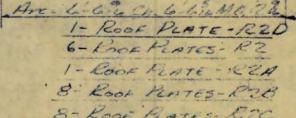 1- ROOF PLATE-R2D
6- ROOF PLATES-R2
1- ROOF PLATE-R2A
8 ROOF PLATES-R2B
8- ROOF PLATES-R2C